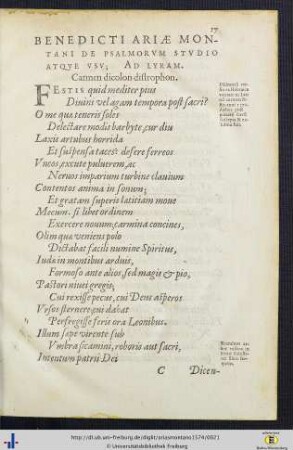 17
BENEDICTI ARIÆ MON-
TANI DE PSALMORVM STVDIO
ATQVE VSV; AD LYRAM.
Carmen dicolon distrophon.
FESTIS quid mediter pius
Diuini vel agam tempora post sacri?
O me qua teneris soles
Delectare modis barbyte, cur diu
Laxis artubus horrida
Et suspensa taces? desere ferreos
Vncos, excute puluerem, ac
Neruos imparium turbine clauium
Contentos anima in sonum;
Et gratam superis lætitiam moue
Mecum. si libet ordinem
Exercere nouum; carmina concines,
Olim quæ veniens polo
Dictabat facili numine Spiritus,
Iudæ in montibus arduis,
Formoso ante alios, sed magis & pio,
Pastori niuei gregis,
Cui rexisse pecus, cui Deus asperos
Vrsos sternere qui dabat
Perfregisse feris ora Leonibus.
Illum sæpe virente sub
Vmbra sicamini, roboris aut sacri,
Intentum patrii Dei
C Dicen-
http://dl.ub.uni-freiburg.de/diglit/ariasmontano1574/0021
© Universitätsbibliothek Freiburg